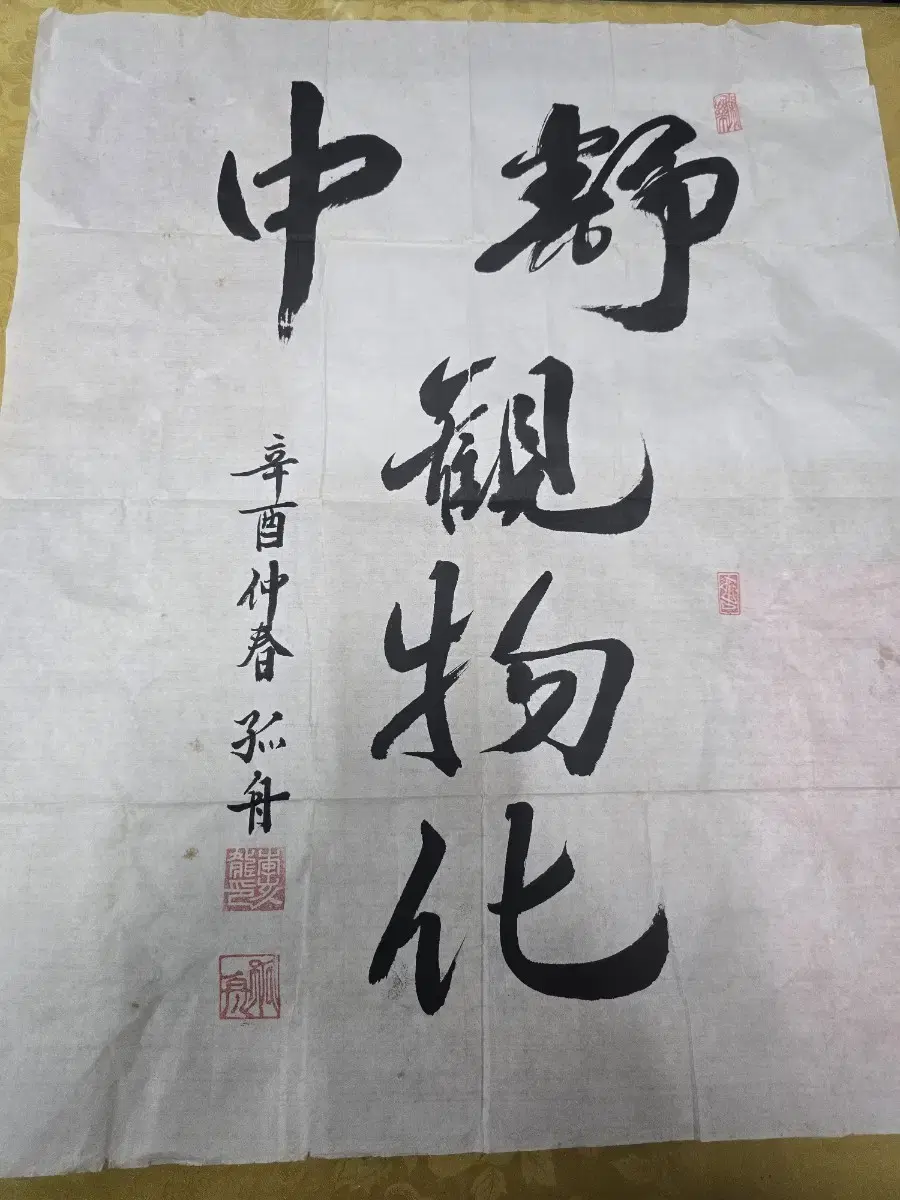 靜觀物化
中
辛酉仲春 孤舟